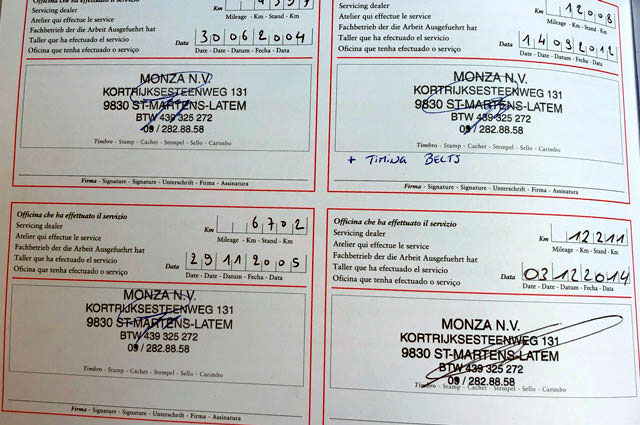 Officina che ha effettuato il servizio
Servicing dealer
Atelier qui effectue le service
Fachbetrieb der die Arbeit Ausgefuehrt hat
Taller que ha efectuado el servicio
Oficina que tenha efectuado o serviço
Km
Mileage - Km - Stand - Km
Data 30062004
Date - Date - Datum - Fecha - Data
MONZA N.V.
KORTRIJKSESTEENWEG 131
9830 ST-MARTENS-LATEM
BTW 439 325 272
09 / 282.88.58
Timbro - Stamp - Cachet - Stempel - Sello - Carimbo
Firma - Signature - Signature - Unterschrift - Firma - Assinatura
Servicing dealer
Atelier qui effectue le service
Fachbetrieb der die Arbeit Ausgefuehrt hat
Taller que ha efectuado el servicio
Oficina que tenha efectuado o serviço
Km 12008
Mileage - Km - Stand - Km
Data 14032012
Date - Date - Datum - Fecha - Data
MONZA N.V.
KORTRIJKSESTEENWEG 131
9830 ST-MARTENS-LATEM
BTW 439 325 272
09 / 282.88.58
Timbro - Stamp - Cachet - Stempel - Sello - Carimbo
+ TIMING BELTS
Firma - Signature - Signature - Unterschrift - Firma - Assinatura
Officina che ha effettuato il servizio
Servicing dealer
Atelier qui effectue le service
Fachbetrieb der die Arbeit Ausgefuehrt hat
Taller que ha efectuado el servicio
Oficina que tenha efectuado o serviço
Km 6702
Mileage - Km - Stand - Km
Data 29112005
Date - Date - Datum - Fecha - Data
MONZA N.V.
KORTRIJKSESTEENWEG 131
9830 ST-MARTENS-LATEM
BTW 439 325 272
09 / 282.88.58
Timbro - Stamp - Cachet - Stempel - Sello - Carimbo
Firma - Signature - Signature - Unterschrift - Firma - Assinatura
Officina che ha effettuato il servizio
Servicing dealer
Atelier qui effectue le service
Fachbetrieb der die Arbeit Ausgefuehrt hat
Taller que ha efectuado el servicio
Oficina que tenha efectuado o serviço
Km 12211
Mileage - Km - Stand - Km
Data 03122014
Date - Date - Datum - Fecha - Data
MONZA N.V.
KORTRIJKSESTEENWEG 131
9830 ST-MARTENS-LATEM
BTW 439 325 272
09 / 282.88.58
Timbro - Stamp - Cachet - Stempel - Sello - Carimbo
Firma - Signature - Signature - Unterschrift - Firma - Assinatura